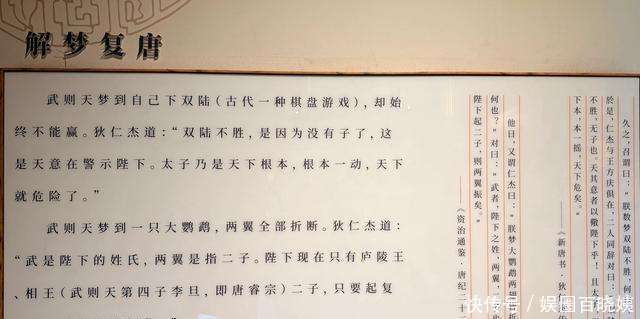 解梦复唐
武则天梦到自己下双陆(古代一种棋盘游戏),却始
终不能赢。狄仁杰道:“双陆不胜,是因为没有子了,这
是天意在警示陛下。太子乃是天下根本,根本一动,天下
就危险了。”
武则天梦到一只大鹦鹉,两翼全部折断。狄仁杰道:
“武是陛下的姓氏,两翼是指二子。陛下现在只有庐陵王、
相王(武则天第四子李旦,即唐睿宗)二子,只要起复
久之,召谓曰:“朕数梦双陆不胜,何
於是,仁杰与王方庆俱在,二人同辞对曰:
不胜,无子也。天其意者以儆陛下乎!且太
下本,本一摇,天下危矣。”
——《新唐书·狄仁
他日,又谓仁杰曰:“朕梦大鹦鹉两翅
何也?”对曰:“武者,陛下之姓,两翼,二
陛下起二子,则两翼振矣。”
——《资治通鉴·唐纪二十
快传号/娱圈百晓姨